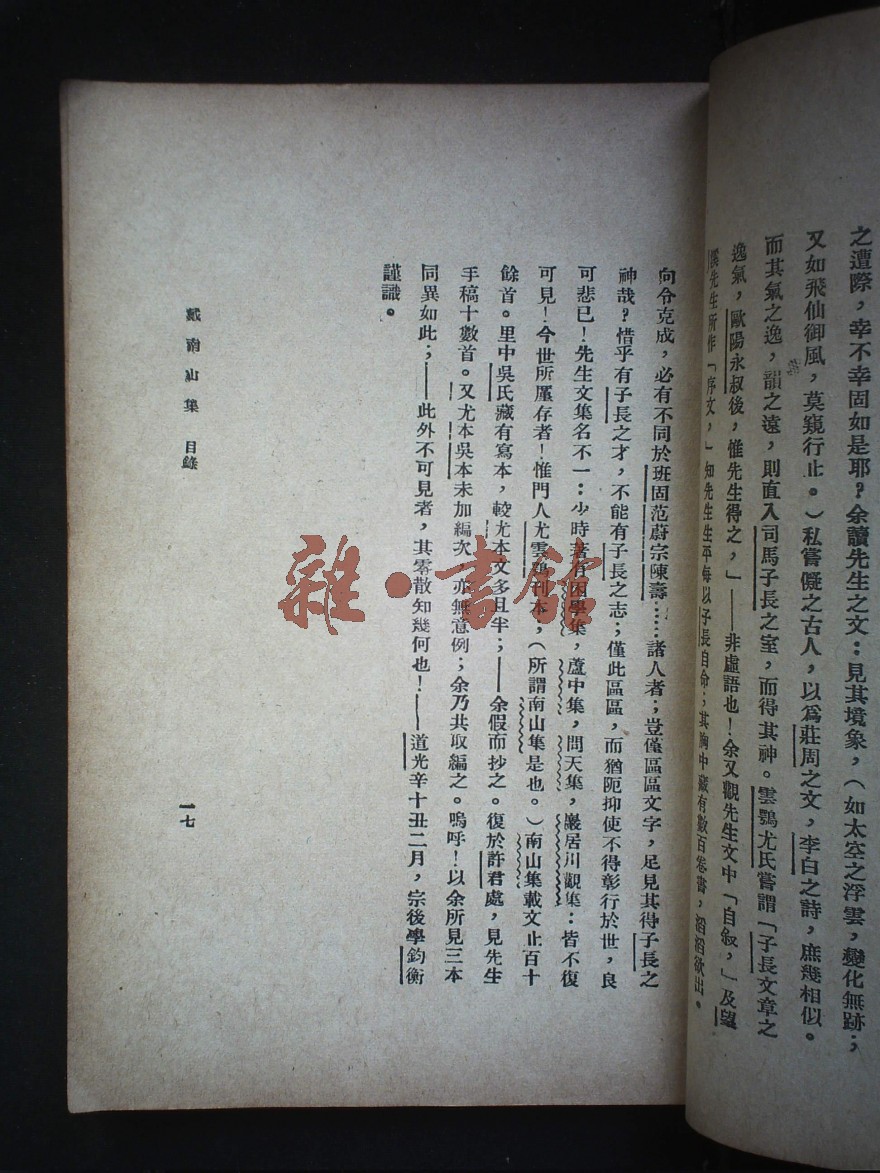 之遭際，幸不幸固如是耶？余讀先生之文：見其境象，（如太空之浮雲，變化無跡；
又如飛仙御風，莫窺行止。）私嘗儗之古人，以爲莊周之文，李白之詩，庶幾相似。
而其氣之逸，韻之遠，則直入司馬子長之室，而得其神。雲鶚尤氏嘗謂「子長文章之
逸氣，歐陽永叔後，惟先生得之，」——非虛語也！余又觀先生文中「自叙，」及望
溪先生所作「序文，」知先生生平每以子長自命；其胸中藏有數百卷書，滔滔欲出。
向令克成，必有不同於班固范蔚宗陳壽……諸人者；豈僅區區文字，足見其得子長之
神哉？惜乎有子長之才，不能有子長之志；僅此區區，而猶阨抑使不得彰行於世，良
可悲已！先生文集名不一：少時著有困學集，蘆中集，問天集，巖居川觀集：皆不復
可見！今世所厪存者！惟門人尤雲鶚刊本，（所謂南山集是也。）南山集載文止百十
餘首。里中吳氏藏有寫本，較尤本文多且半；——余假而抄之。復於許君處，見先生
手稿十數首。又尤本吳本未加編次，亦無意例；余乃共取編之。嗚呼！以余所見三本
同異如此；——此外不可見者，其零散知幾何也！——道光辛十丑二月，宗後學鈞衡
謹識。
戴南山集 目錄
一七
雜·書館